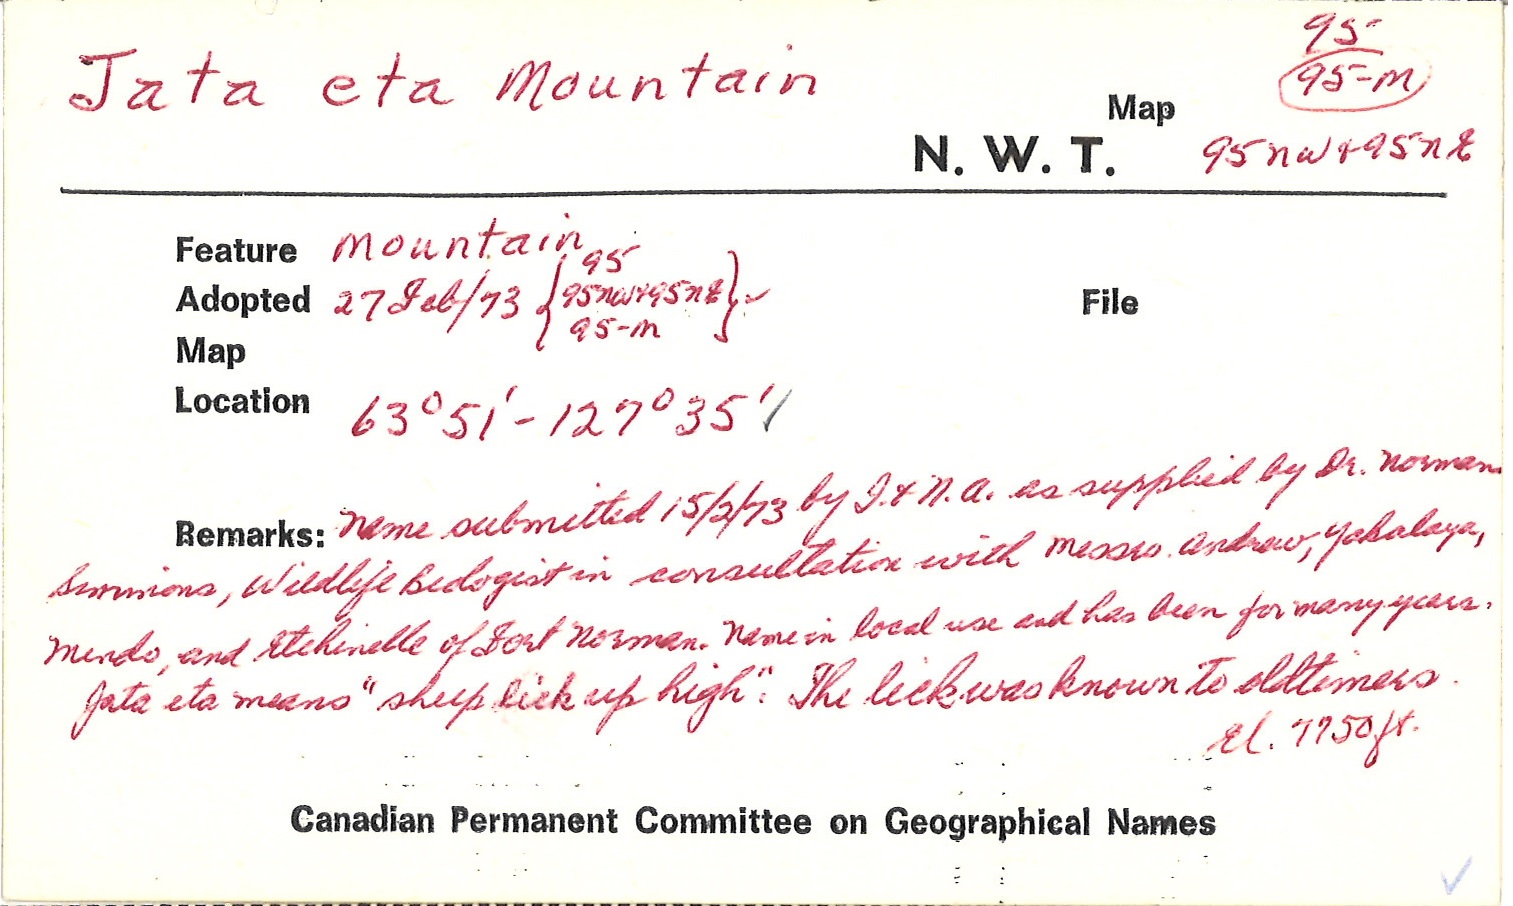 95
Jata eta Mountain
95-M
Map
N. W. T.
95 NW & 95 NE
Feature Mountain
95
Adopted 27 Feb/73 {95NW & 95NE}
95-M
File
Map
Location 63°51' - 127°35'
Remarks: Name submitted 15/2/73 by I. & N.A. as supplied by Dr. Norman
Simmions, Wildlife Biologist in consultation with Messrs. Andrew, Yakalaya,
Mendo, and Etchinelle of Fort Norman. Name in local use and has been for many years.
Jata eta means "sheep lick up high". The lick was known to oldtimers.
El. 7750 ft.
Canadian Permanent Committee on Geographical Names